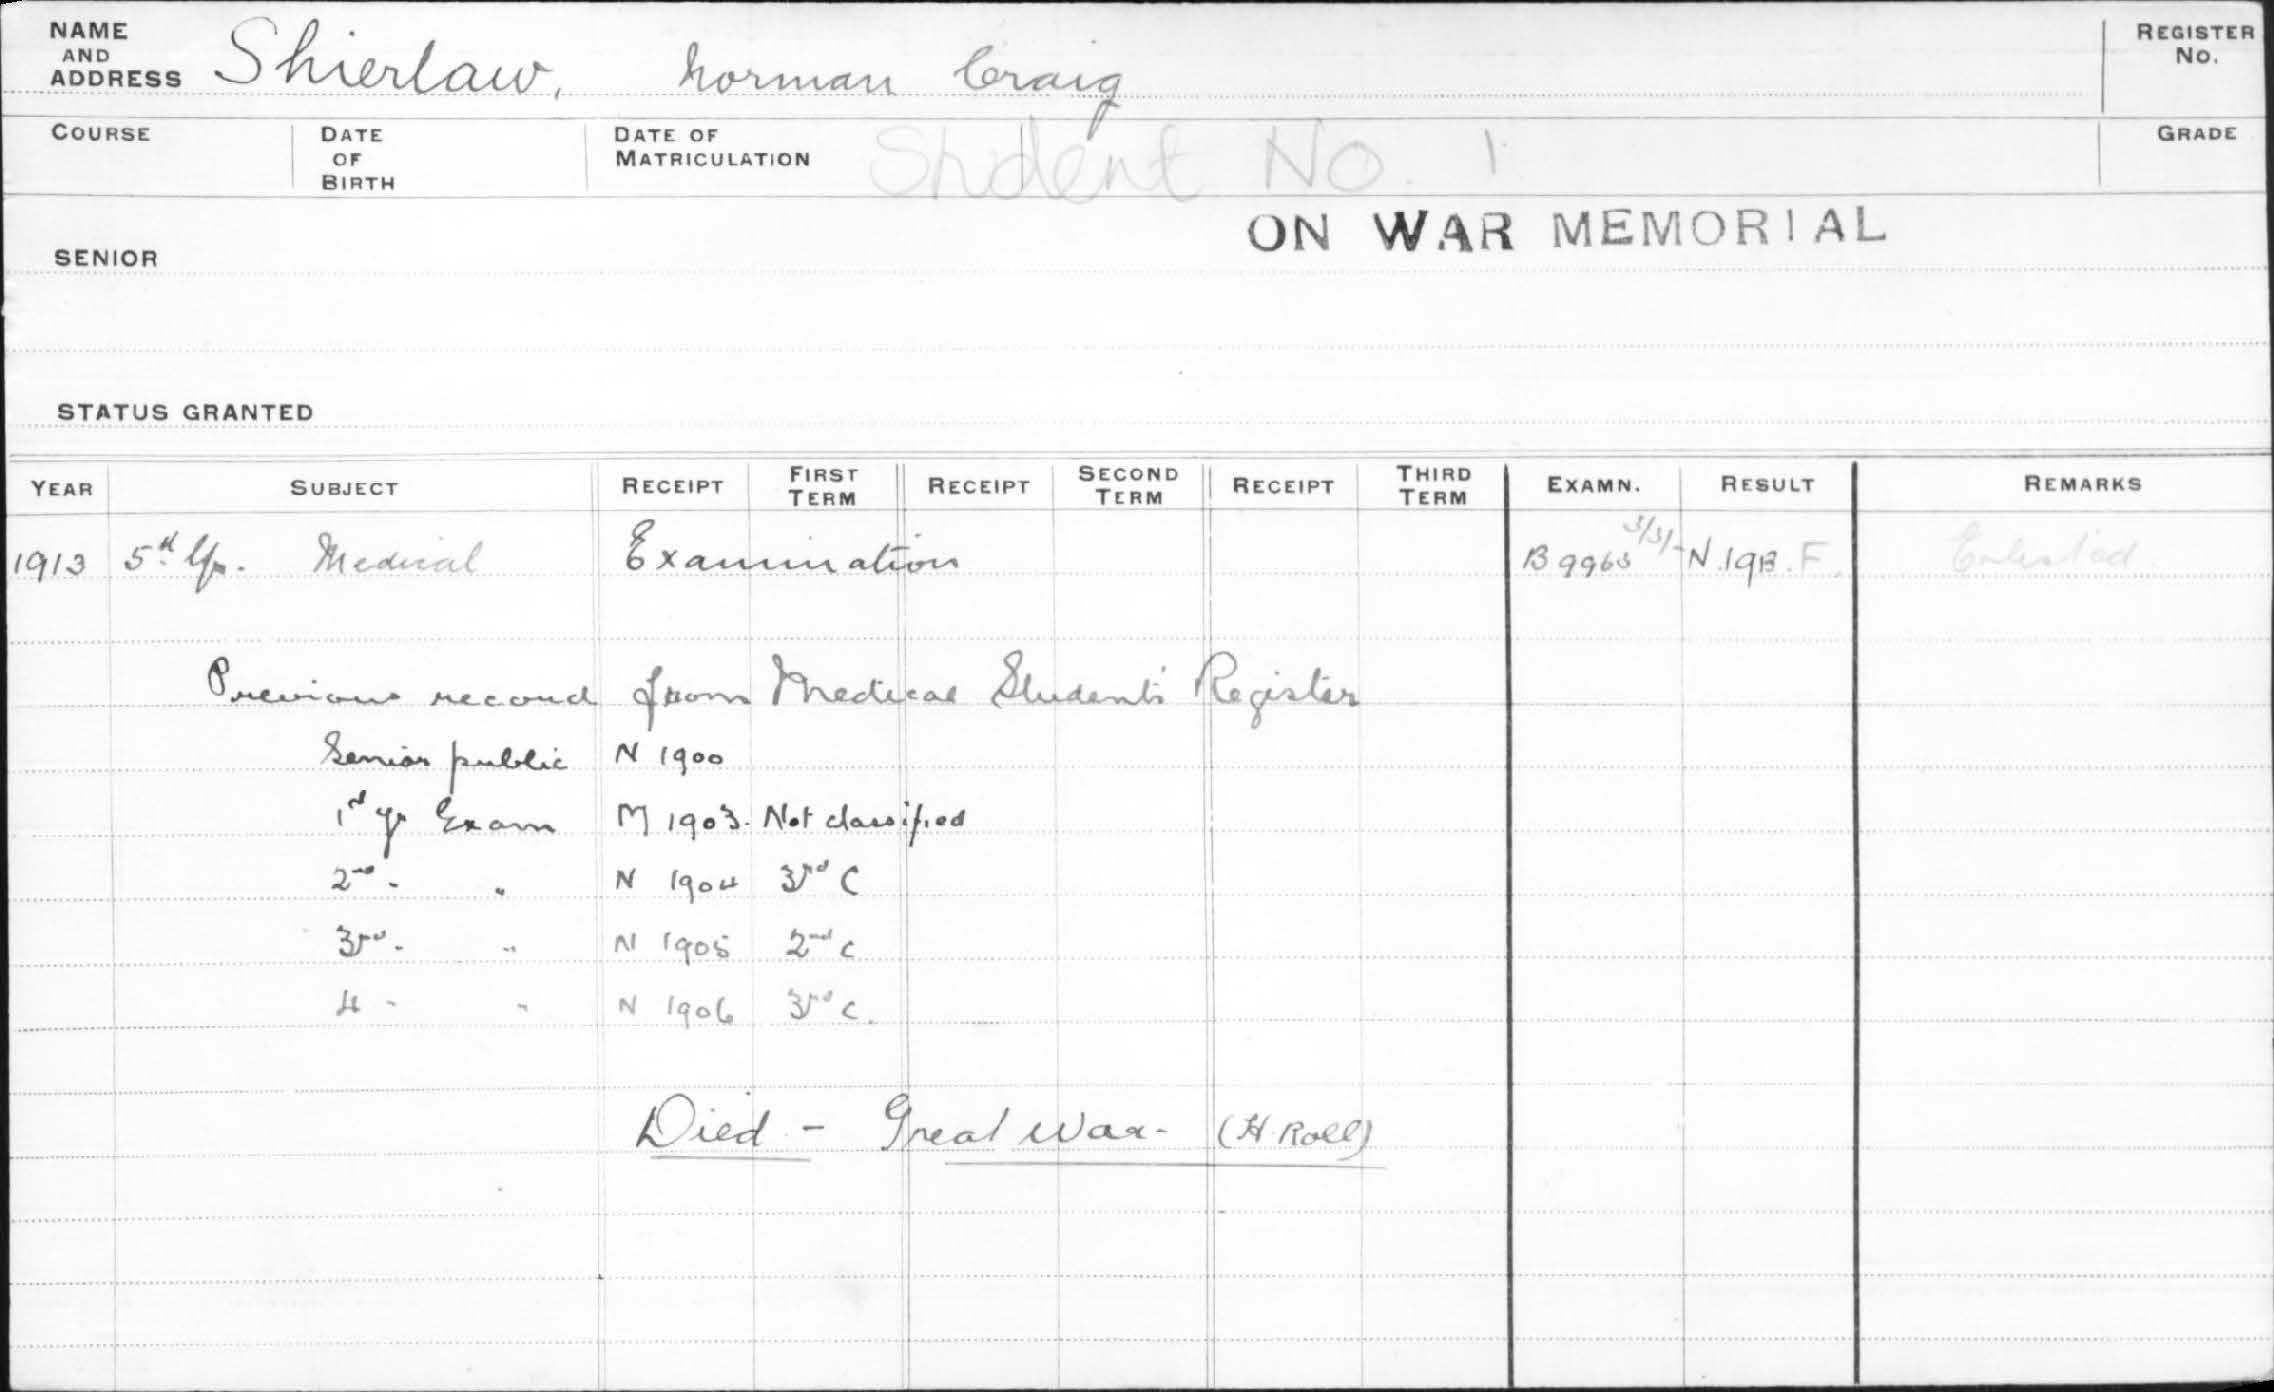 NAME AND ADDRESS Shierlaw, Norman Craig REGISTER No.
COURSE DATE OF BIRTH DATE OF MATRICULATION Student No. 1 GRADE
ON WAR MEMORIAL
SENIOR
STATUS GRANTED
YEAR SUBJECT RECEIPT FIRST TERM RECEIPT SECOND TERM RECEIPT THIRD TERM EXAMN. RESULT REMARKS
1913 5th Yr. Medical Examination 3/3/- N. 1913. F. Enlisted
Previous record from Medical Students' Register
Senior public N 1900
1st yr Exam M 1903. Not classified
2nd - " N 1904 3rd C
3rd - " N 1905 2nd C
4 - " N 1906 3rd C.
Died - Great War - (H. Roll)